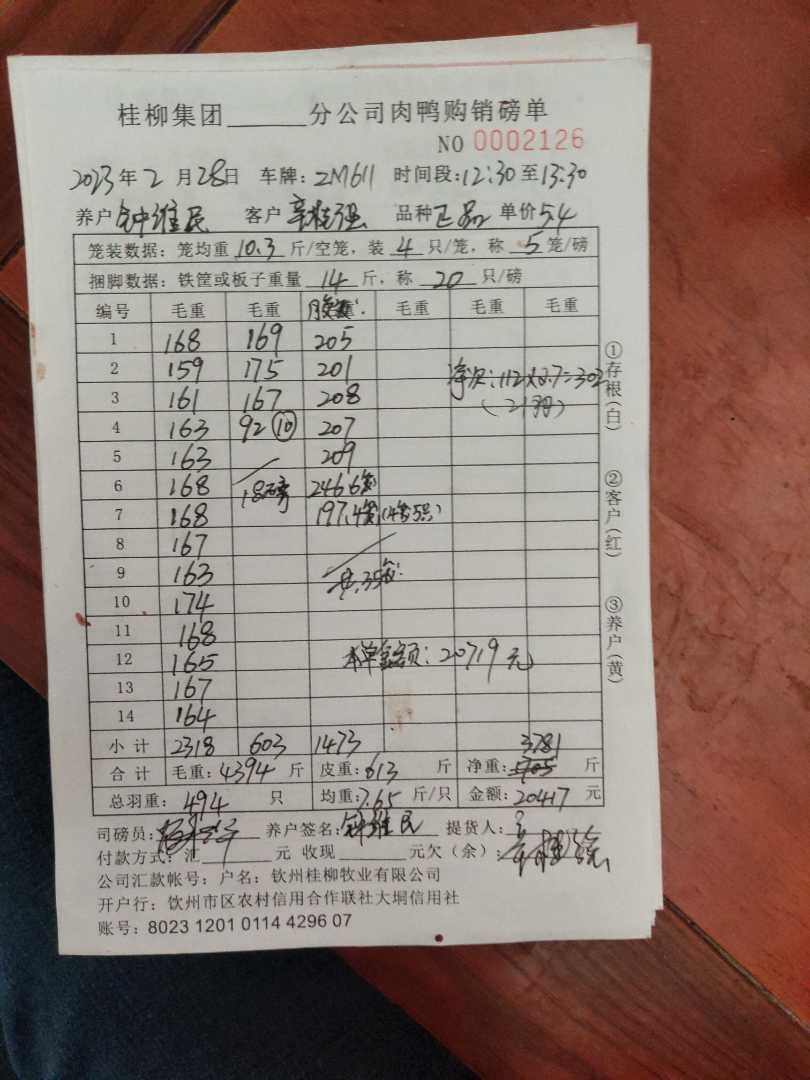 桂柳集团______分公司肉鸭购销磅单
NO 0002126
2023年2月28日 车牌:ZM611 时间段:12:30至13:30
养户 钟维民 客户 强 品种 正品 单价5.4
笼装数据:笼均重 10.3 斤/空笼,装 4 只/笼,称 5 笼/磅
捆脚数据:铁筐或板子重量 14 斤,称 20 只/磅
编号 毛重 毛重 毛重 毛重 毛重
1 168 169 205
2 159 175 201 净次:112×2.7=302
3 161 167 208 (21羽)
4 163 92 ⑩ 207
5 163 209
6 168 18磅 246.6
7 168 197.4
8 167
9 163 共35
10 174
11 168
12 165 本单金额:20719元
13 167
14 164
小计 2318 603 1473 3781
合计 毛重:4394 斤 皮重:613 斤 净重: 斤
总羽重: 494 只 均重:7.65 斤/只 金额:20417 元
司磅员: 养户签名:钟维民 提货人:
付款方式:汇______元 收现______元欠(余):
公司汇款帐号:户名:钦州桂柳牧业有限公司
开户行:钦州市区农村信用合作联社大垌信用社
账号:8023 1201 0114 4296 07
①存根(白)
②客户(红)
③养户(黄)